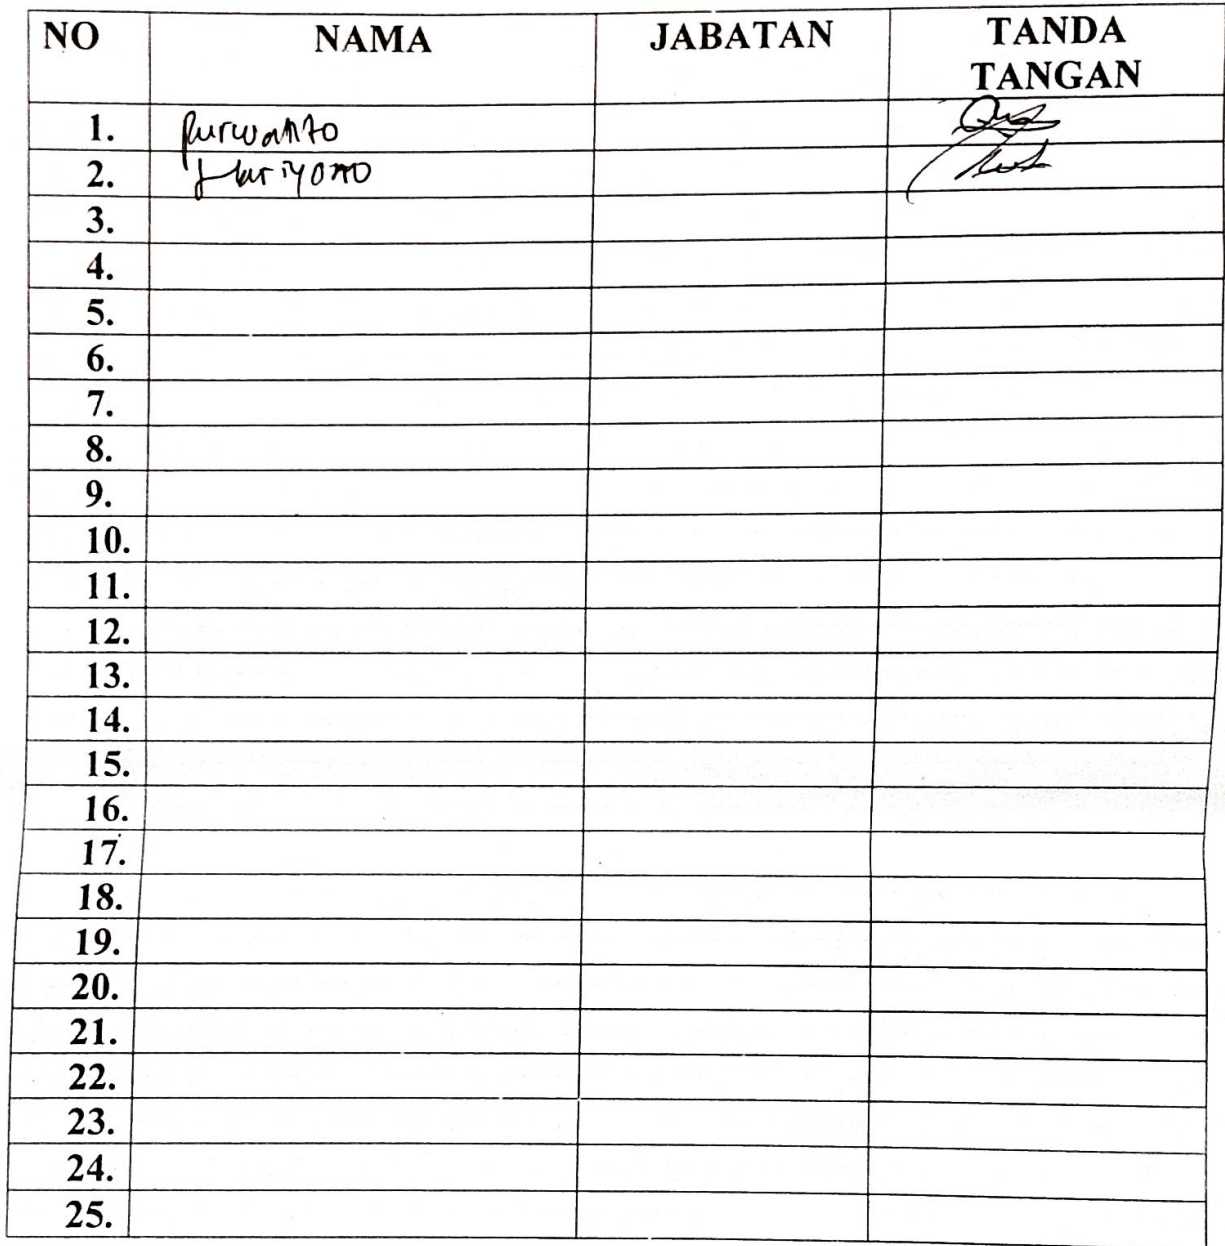 NO NAMA JABATAN TANDA TANGAN
1. Purwanto
2. Hariyono
3.
4.
5.
6.
7.
8.
9.
10.
11.
12.
13.
14.
15.
16.
17.
18.
19.
20.
21.
22.
23.
24.
25.